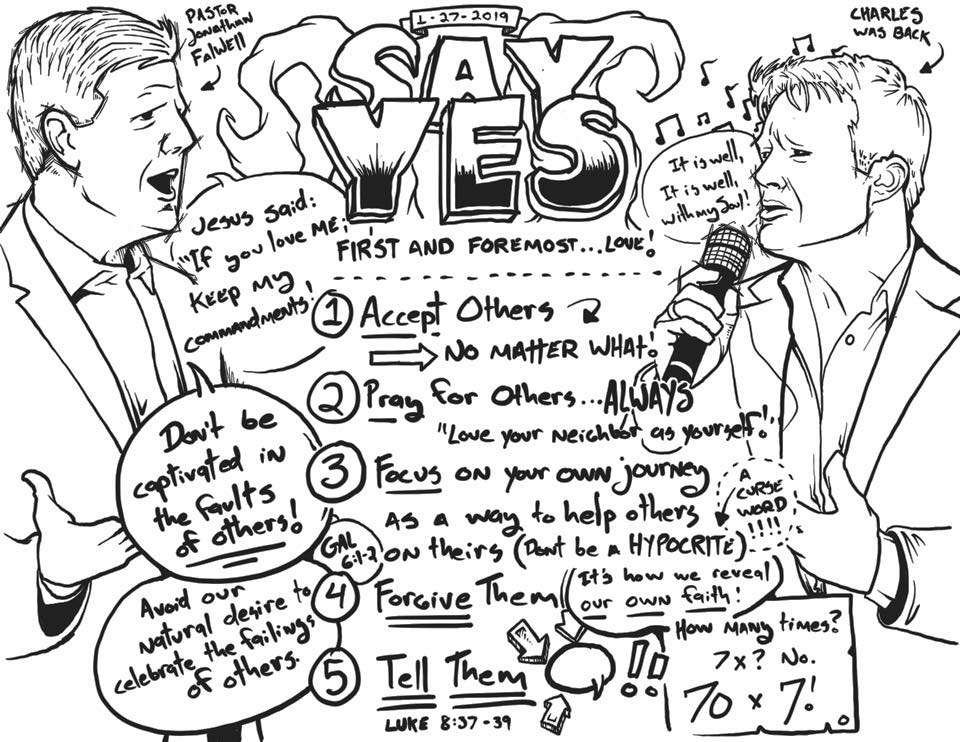 PASTOR
Jonathan
Falwell
1-27-2019
CHARLES
WAS BACK
SAY
YES
It is well,
It is well,
with my Soul!
Jesus said:
"If you love ME,
Keep my
commandments!
FIRST AND FOREMOST...LOVE!
1 Accept Others
NO MATTER WHAT!
2 Pray for Others...ALWAYS
"Love your Neighbor as yourself!"
3 Focus on your own journey
as a way to help others
on theirs (Dont be a HYPOCRITE)
A
CURSE
WORD
!!!!
Don't be
captivated in
the faults
of others!
GAL
6:1-2
4 Forgive Them
It's how we reveal
our own faith!
Avoid our
natural desire to
celebrate the failings
of others.
How many times?
7x? No.
70 x 7!
5 Tell Them
!!
LUKE 8:37-39